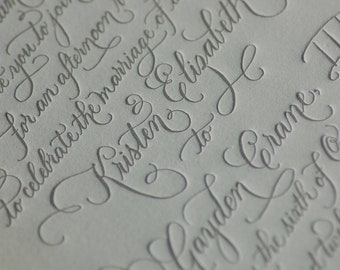 you to join
for an afternoon
to celebrate the marriage of
Kristen Elisabeth
to
Hayden Crane, II
the sixth of O